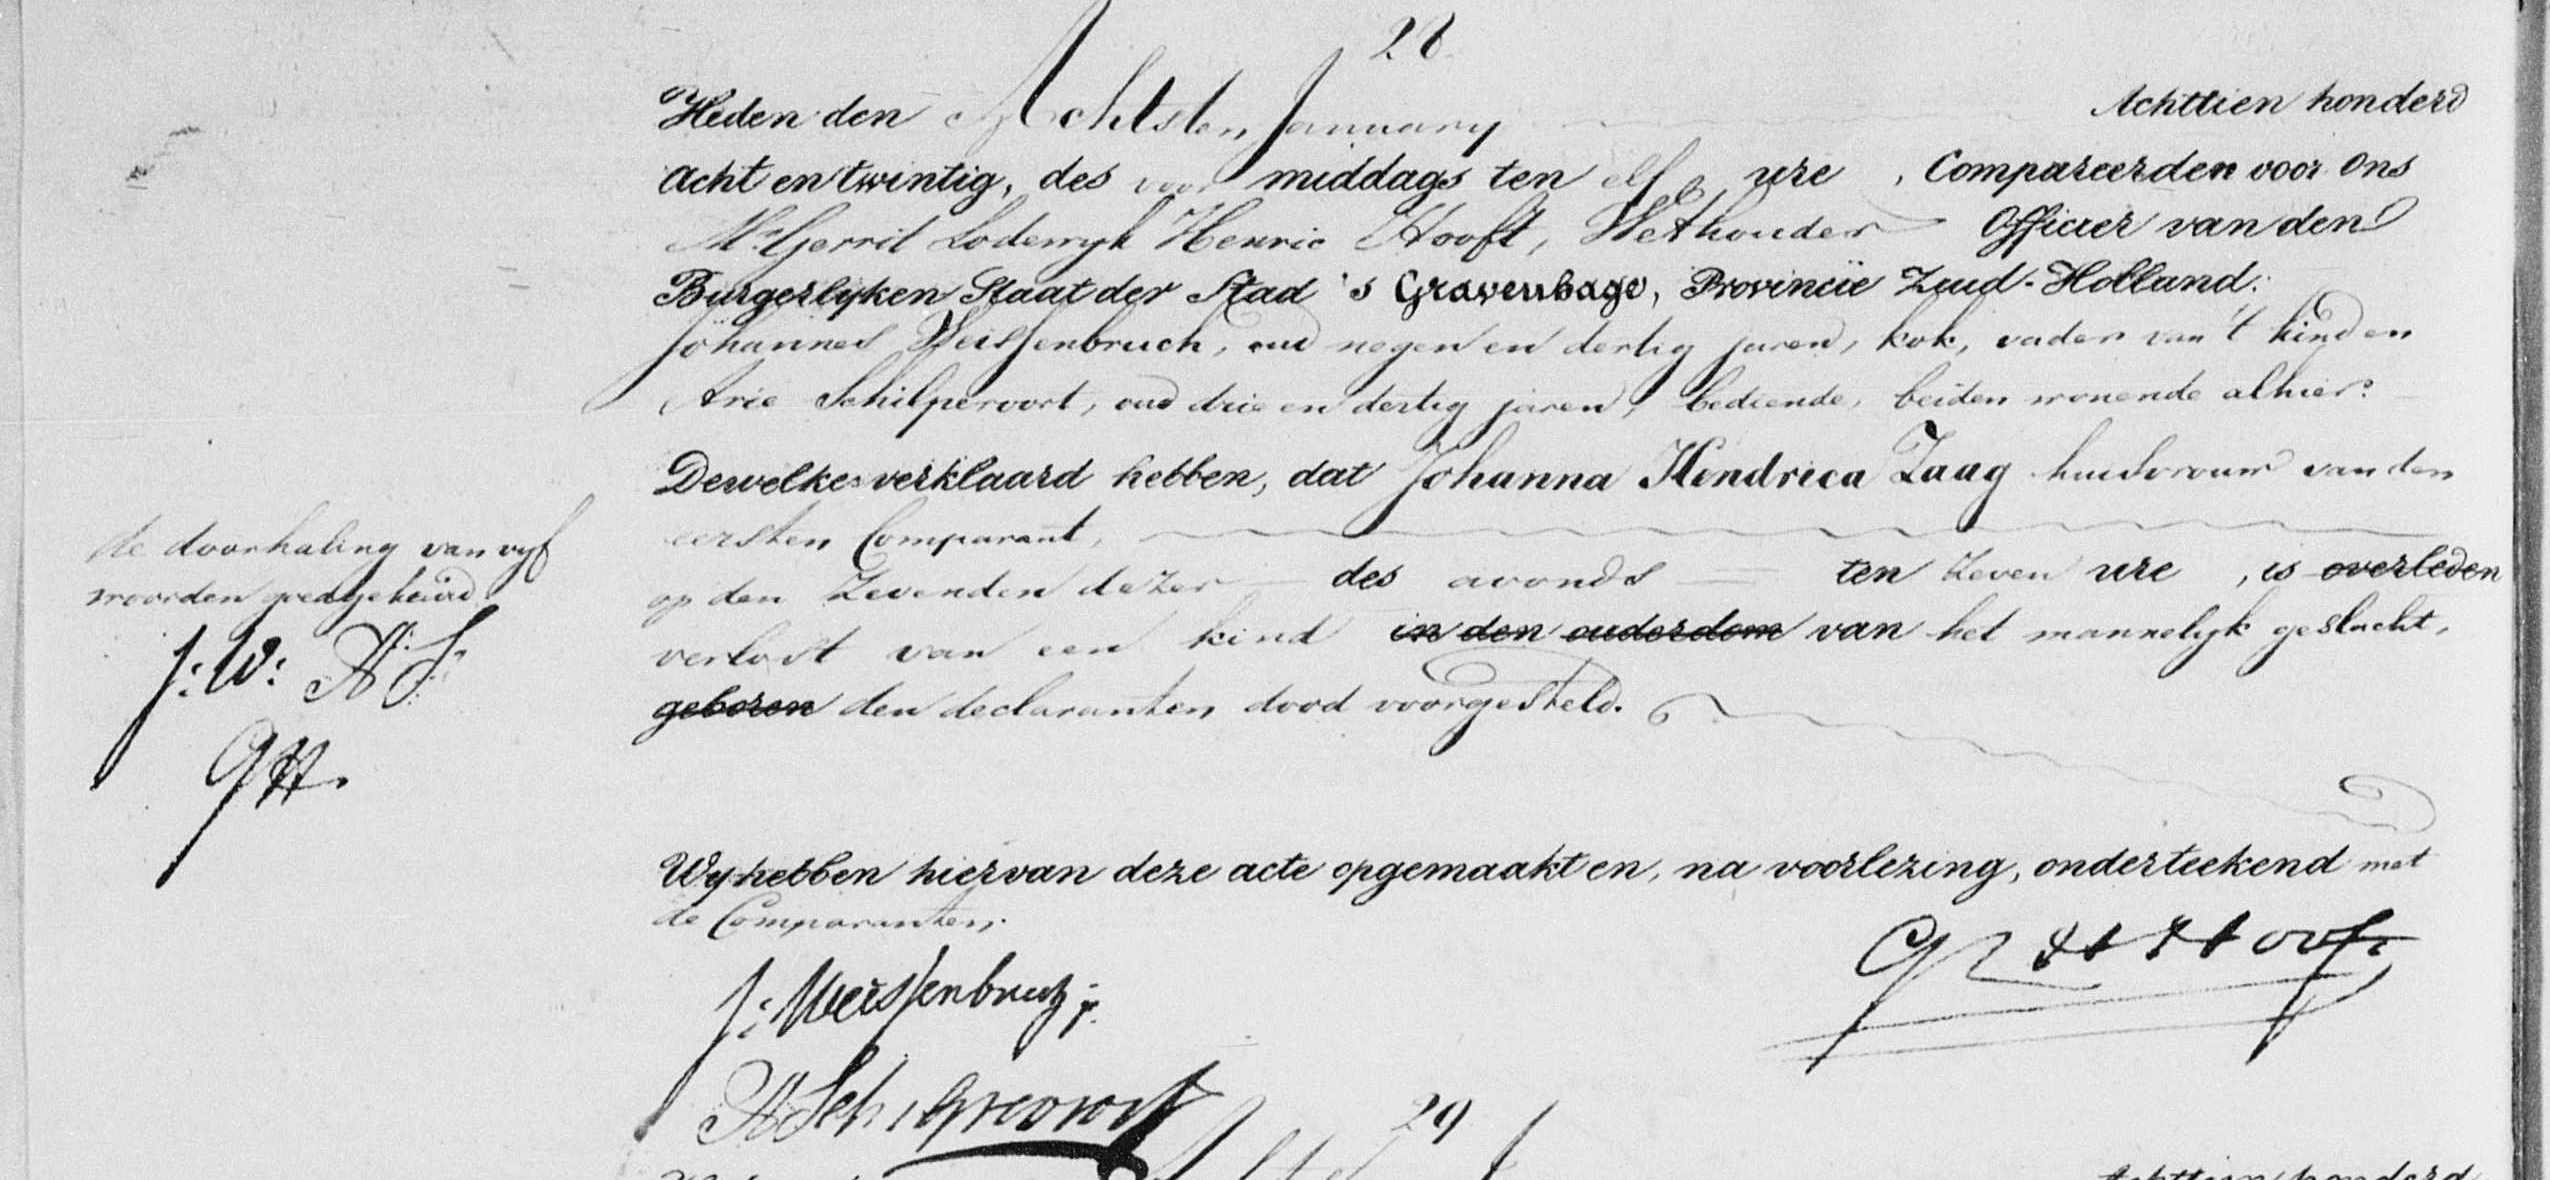 28
Heden den Achtsten January Achttien honderd
acht en twintig, des voor middags ten elf ure, Compareerden voor Ons
Mr. Gerrit Lodewyk Henric Hooft, Wethouder Officier van den
Burgerlyken Staat der Stad 's Gravenhage, Provincie Zuid-Holland:
Johannes Weissenbruch, oud negen en dertig jaren, kok, vader van 't kind en
Arie Schilpervoort, oud drie en dertig jaren, bediende, beiden wonende alhier:
Dewelke verklaard hebben, dat Johanna Hendrica Zaag huisvrouw van den
eersten Comparant,
op den Zevenden dezer des avonds ten zeven ure, is overleden
verlost van een kind in den ouderdom van het mannelyk geslacht,
geboren den declaranten dood voorgesteld.
de doorhaling van vyf
woorden goedgekeurd
J: W: A: S:
GH.
Wy hebben hiervan deze acte opgemaakt en, na voorlezing, onderteekend met
de Comparanten.
J: Weissenbruch
A Schilpervoort
G L H Hooft
29
Achttien honderd